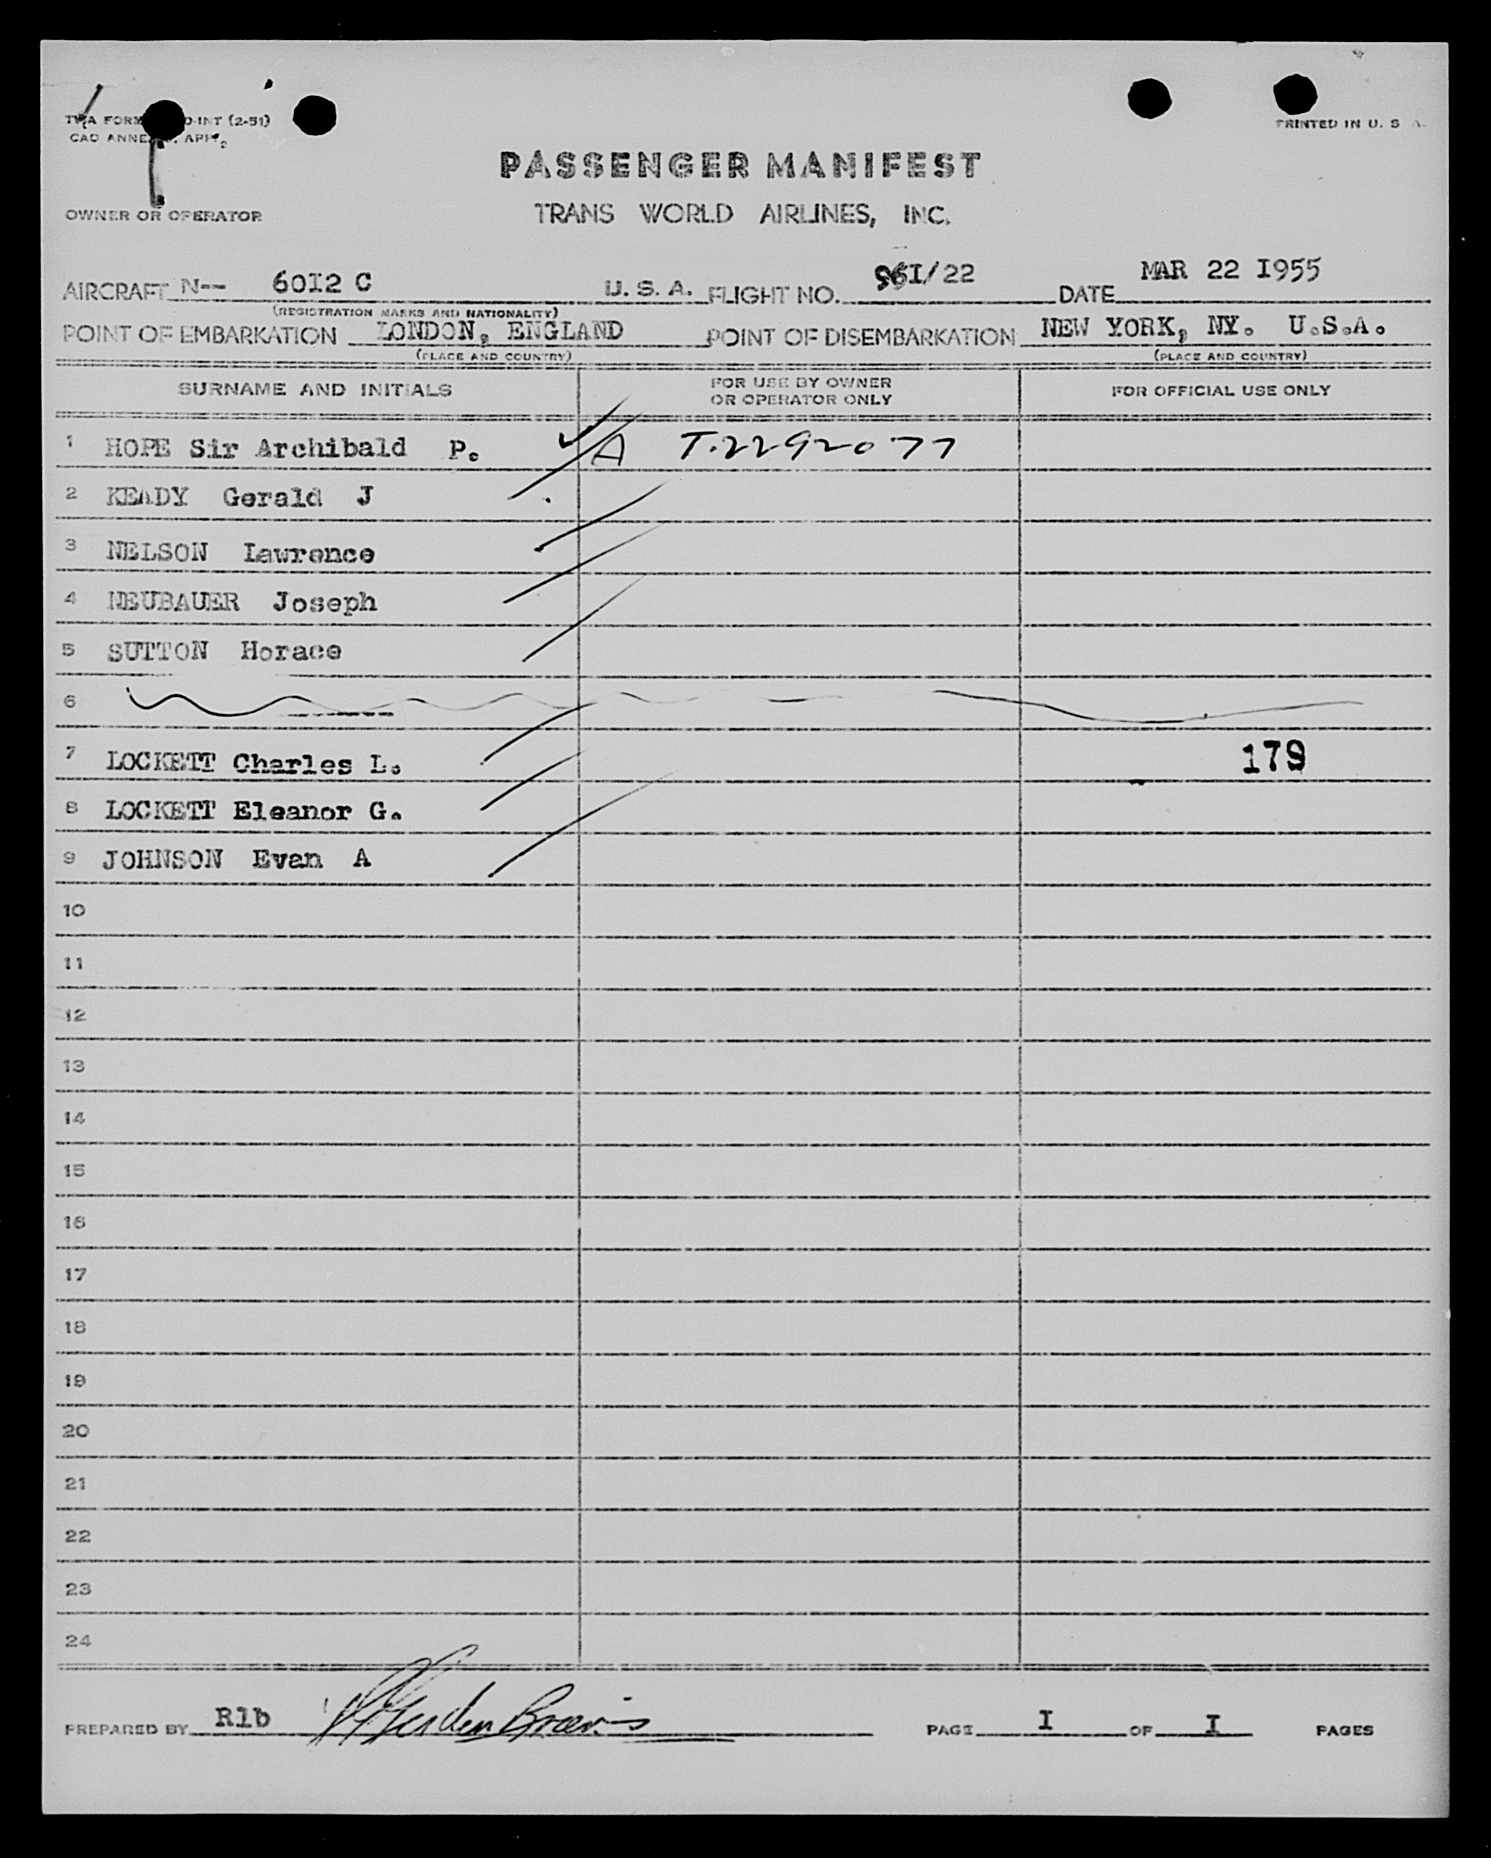 TWA FORM D-INT (2-51)
PRINTED IN U. S. A.
CAO ANNEX 9, APP.
PASSENGER MANIFEST
OWNER OR OPERATOR
TRANS WORLD AIRLINES, INC.
AIRCRAFT N-- 6012 C U. S. A. FLIGHT NO. 961/22 DATE MAR 22 1955
(REGISTRATION MARKS AND NATIONALITY)
POINT OF EMBARKATION LONDON, ENGLAND POINT OF DISEMBARKATION NEW YORK, NY. U.S.A.
(PLACE AND COUNTRY) (PLACE AND COUNTRY)
SURNAME AND INITIALS FOR USE BY OWNER OR OPERATOR ONLY FOR OFFICIAL USE ONLY
1 HOPE Sir Archibald P. A T.2292077
2 KEADY Gerald J
3 NELSON Lawrence
4 NEUBAUER Joseph
5 SUTTON Horace
6
7 LOCKETT Charles L. 179
8 LOCKETT Eleanor G.
9 JOHNSON Evan A
10
11
12
13
14
15
16
17
18
19
20
21
22
23
24
PREPARED BY R1b PAGE I OF I PAGES